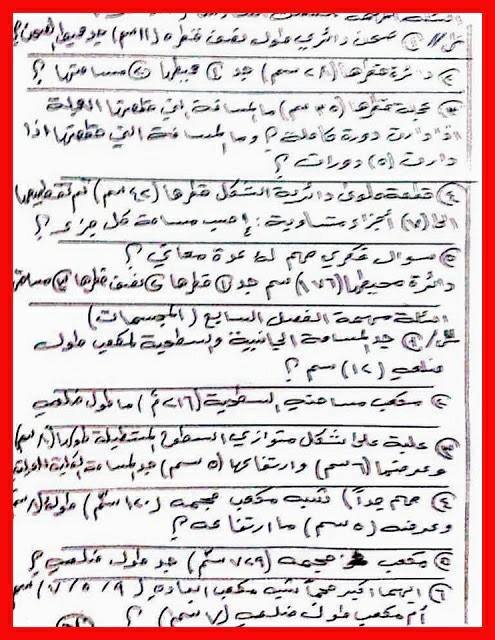 س١// ① صحن دائري طول نصف قطره (١١ سم) جد محيط الصحن؟
② دائرة قطرها (٢٨ سم) جد ① محيطها ② مساحتها ؟
③ عجلة قطرها (٣٥ سم) ما المسافة التي تقطعها العجلة
اذا دارت دورة كاملة ؟ وما المسافة التي تقطعها اذا
دارت (٥) دورات ؟
④ قطعة حلوى دائرية الشكل قطرها (٤٢ سم) تم تقطيعها
الى (٧) أجزاء متساوية : إحسب مساحة كل جزء ؟
⑤ سؤال فكري مهم له عدة معاني ؟
دائرة محيطها (١٧٦) سم جد ① قطرها ② نصف قطرها ③
اسئلة مهمة الفصل السابع (المجسمات)
س/ ① جد المساحة الجانبية والسطحية لمكعب طول
ضلعه (١٢) سم ؟
② مكعب مساحته السطحية (٢١٦ م٢) ما طول ضلعه
③ علبة على شكل متوازي السطوح المستطيلة طولها (٨ سم)
وعرضها (٦ سم) وارتفاعها (٥ سم) جد المساحة الكلية
④ مهم جداً) شبه مكعب حجمه (١٢٠ سم٣) طوله (٨ سم)
وعرضه (٥ سم) ما ارتفاعه ؟
⑤ مكعب حجمه (٧٢٩ سم٣) جد طول ضلعه ؟
⑥ ايهما اكبر حجماً شبه مكعب ابعاده (٩ / ٥ / ٧) سم
أم مكعب طول ضلعه (٧ سم) ؟